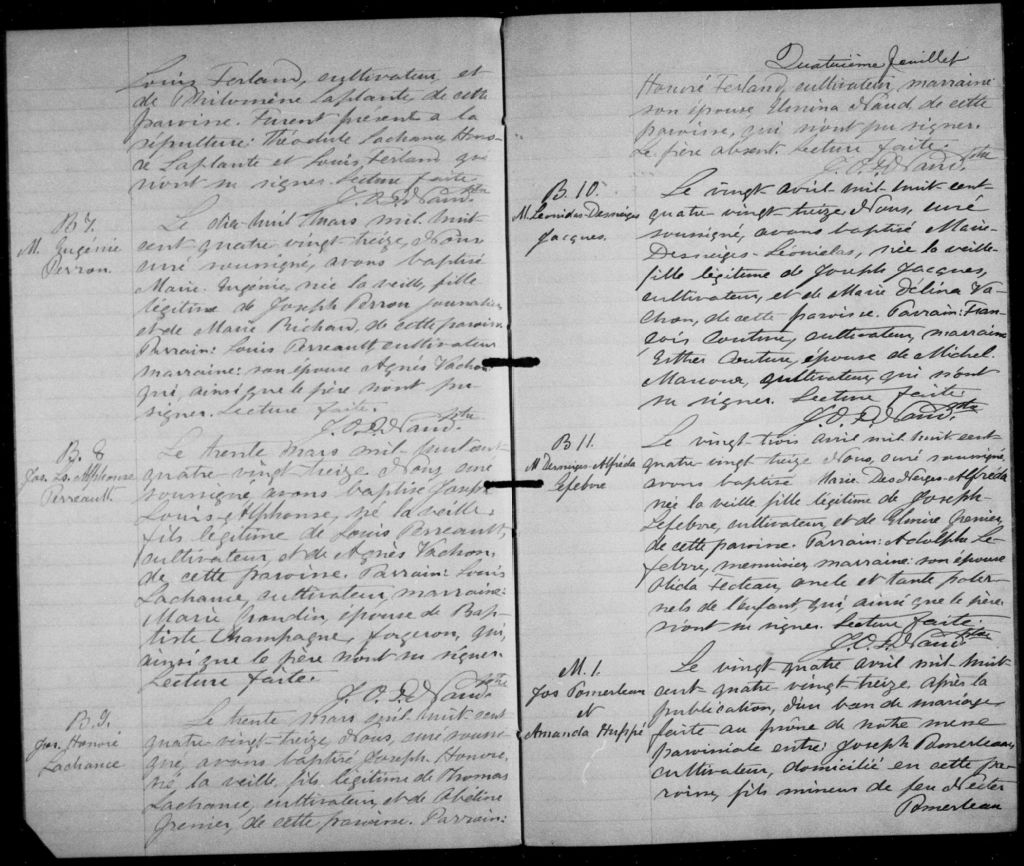 Louis Ferland, cultivateur et
de Philomène Laplante, de cette
paroisse. Furent présent à la
sépulture: Théodule Lachance, Hono-
ré Laplante et Louis Ferland qui
n'ont su signer. Lecture faite.
J. O. P. Naud, Ptre
B 7.
M. Eugénie
Perron
Le dix-huit mars mil huit
cent quatre vingt-treize, Nous
curé soussigné, avons baptisé
Marie Eugénie, née la veille, fille
légitime de Joseph Perron journalier
et de Marie Richard, de cette paroisse
Parrain: Louis Perreault, cultivateur
marraine: son épouse Agnès Vachon
qui, ainsi que le père n'ont pu
signer. Lecture faite.
J. O. P. Naud. Ptre
B. 8
Jos. Ls. Alphonse
Perreault
Le trente mars mil-huit cent
quatre-vingt-treize Nous curé
soussigné, avons baptisé Joseph
Louis-Alphonse, né la veille
fils légitime de Louis Perreault,
cultivateur, et de Agnès Vachon,
de cette paroisse. Parrain: Louis
Lachance, cultivateur, marraine:
Marie Grondin, épouse de Bap-
tiste Champagne, forgeron, qui,
ainsi que le père n'ont su signer.
Lecture faite.
J. O. P. Naud. Ptre
B. 9.
Jos. Honoré
Lachance
Le trente mars mil huit cent
quatre vingt-treize, Nous, curé soussi-
gné, avons baptisé Joseph Honoré,
né la veille, fils légitime de Thomas
Lachance, cultivateur, et de
Grenier, de cette paroisse. Parrain:
Quatrième feuillet
Honoré Ferland, cultivateur, marraine
son épouse Elmina Naud, de cette
paroisse, qui n'ont pu signer.
Le père absent. Lecture faite.
J. O. P. Naud. Ptre
B. 10.
M. Leonidas-Desneiges
Jacques.
Le vingt avril mil huit cent-
quatre-vingt-treize, Nous, curé
soussigné, avons baptisé Marie-
Desneiges-Léonidas, née la veille
fille légitime de Joseph Jacques,
cultivateur, et de Marie Délina Va-
chon, de cette paroisse. Parrain: Fran-
çois Couture, cultivateur, marraine
Esther Couture, épouse de Michel
Marcoux, cultivateur, qui n'ont
su signer. Lecture faite.
J. O. P. Naud. Ptre
B 11.
M. Desneiges-Alfréda
Lefebvre
Le vingt-trois avril mil huit cent-
quatre-vingt treize Nous, curé soussigné
avons baptisé Marie Des Neiges-Alfréda
née la veille fille légitime de Joseph
Lefebvre, cultivateur, et de Elmire Grenier,
de cette paroisse. Parrain: Adolphe Le-
febvre, menuisier, marraine: son épouse
Olida Fecteau, oncle et tante pater-
nels de l'enfant, qui, ainsi que le père
n'ont su signer. Lecture faite.
J. O. P. Naud. Ptre
M. 1.
Jos Pomerleau
et
Amanda Huppé
Le vingt quatre avril mil huit
cent-quatre-vingt-treize après la
publication, d'un ban de mariage
faite au prône de notre messe
paroissiale entre: Joseph Pomerleau,
cultivateur, domicilié en cette pa-
roisse, fils mineur de feu Nester
Pomerleau